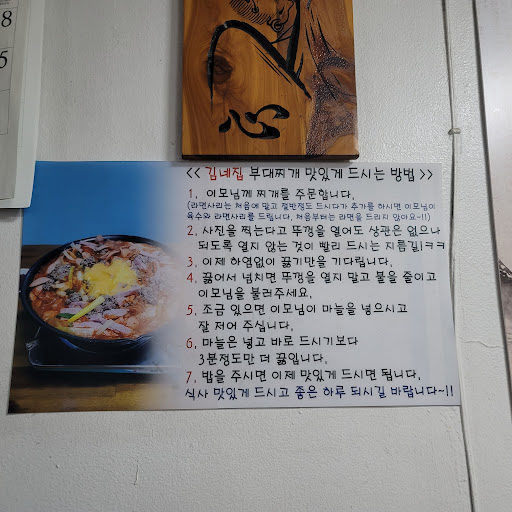 8
5
心
<< 김네집 부대찌개 맛있게 드시는 방법 >>
1. 이모님께 찌개를 주문합니다.
(라면사리는 처음에 말고 절반정도 드시다가 추가를 하시면 이모님이
육수와 라면사리를 드립니다. 처음부터는 라면을 드리지 않아요~!!)
2. 사진을 찍는다고 뚜껑을 열어도 상관은 없으나
되도록 열지 않는 것이 빨리 드시는 지름길!ㅋㅋ
3. 이제 하염없이 끓기만을 기다립니다.
4. 끓어서 넘치면 뚜껑을 열지 말고 불을 줄이고
이모님을 불러주세요.
5. 조금 있으면 이모님이 마늘을 넣으시고
잘 저어 주십니다.
6. 마늘은 넣고 바로 드시기보다
3분정도만 더 끓입니다.
7. 밥을 주시면 이제 맛있게 드시면 됩니다.
식사 맛있게 드시고 좋은 하루 되시길 바랍니다~!!